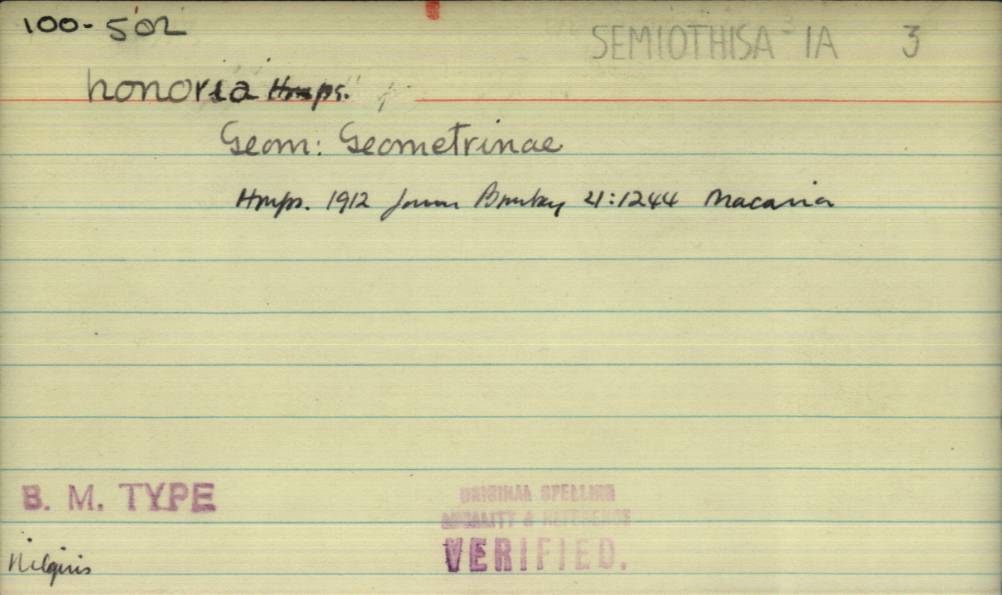 100-502
SEMIOTHISA IA 3
honoria Hmps.
Geom: Geometrinae
Hmps. 1912 Journ Bombay 21:1244 Macaria
B. M. TYPE
ORIGINAL SPELLING
LOCALITY & REFERENCE
VERIFIED.
Nilgiris